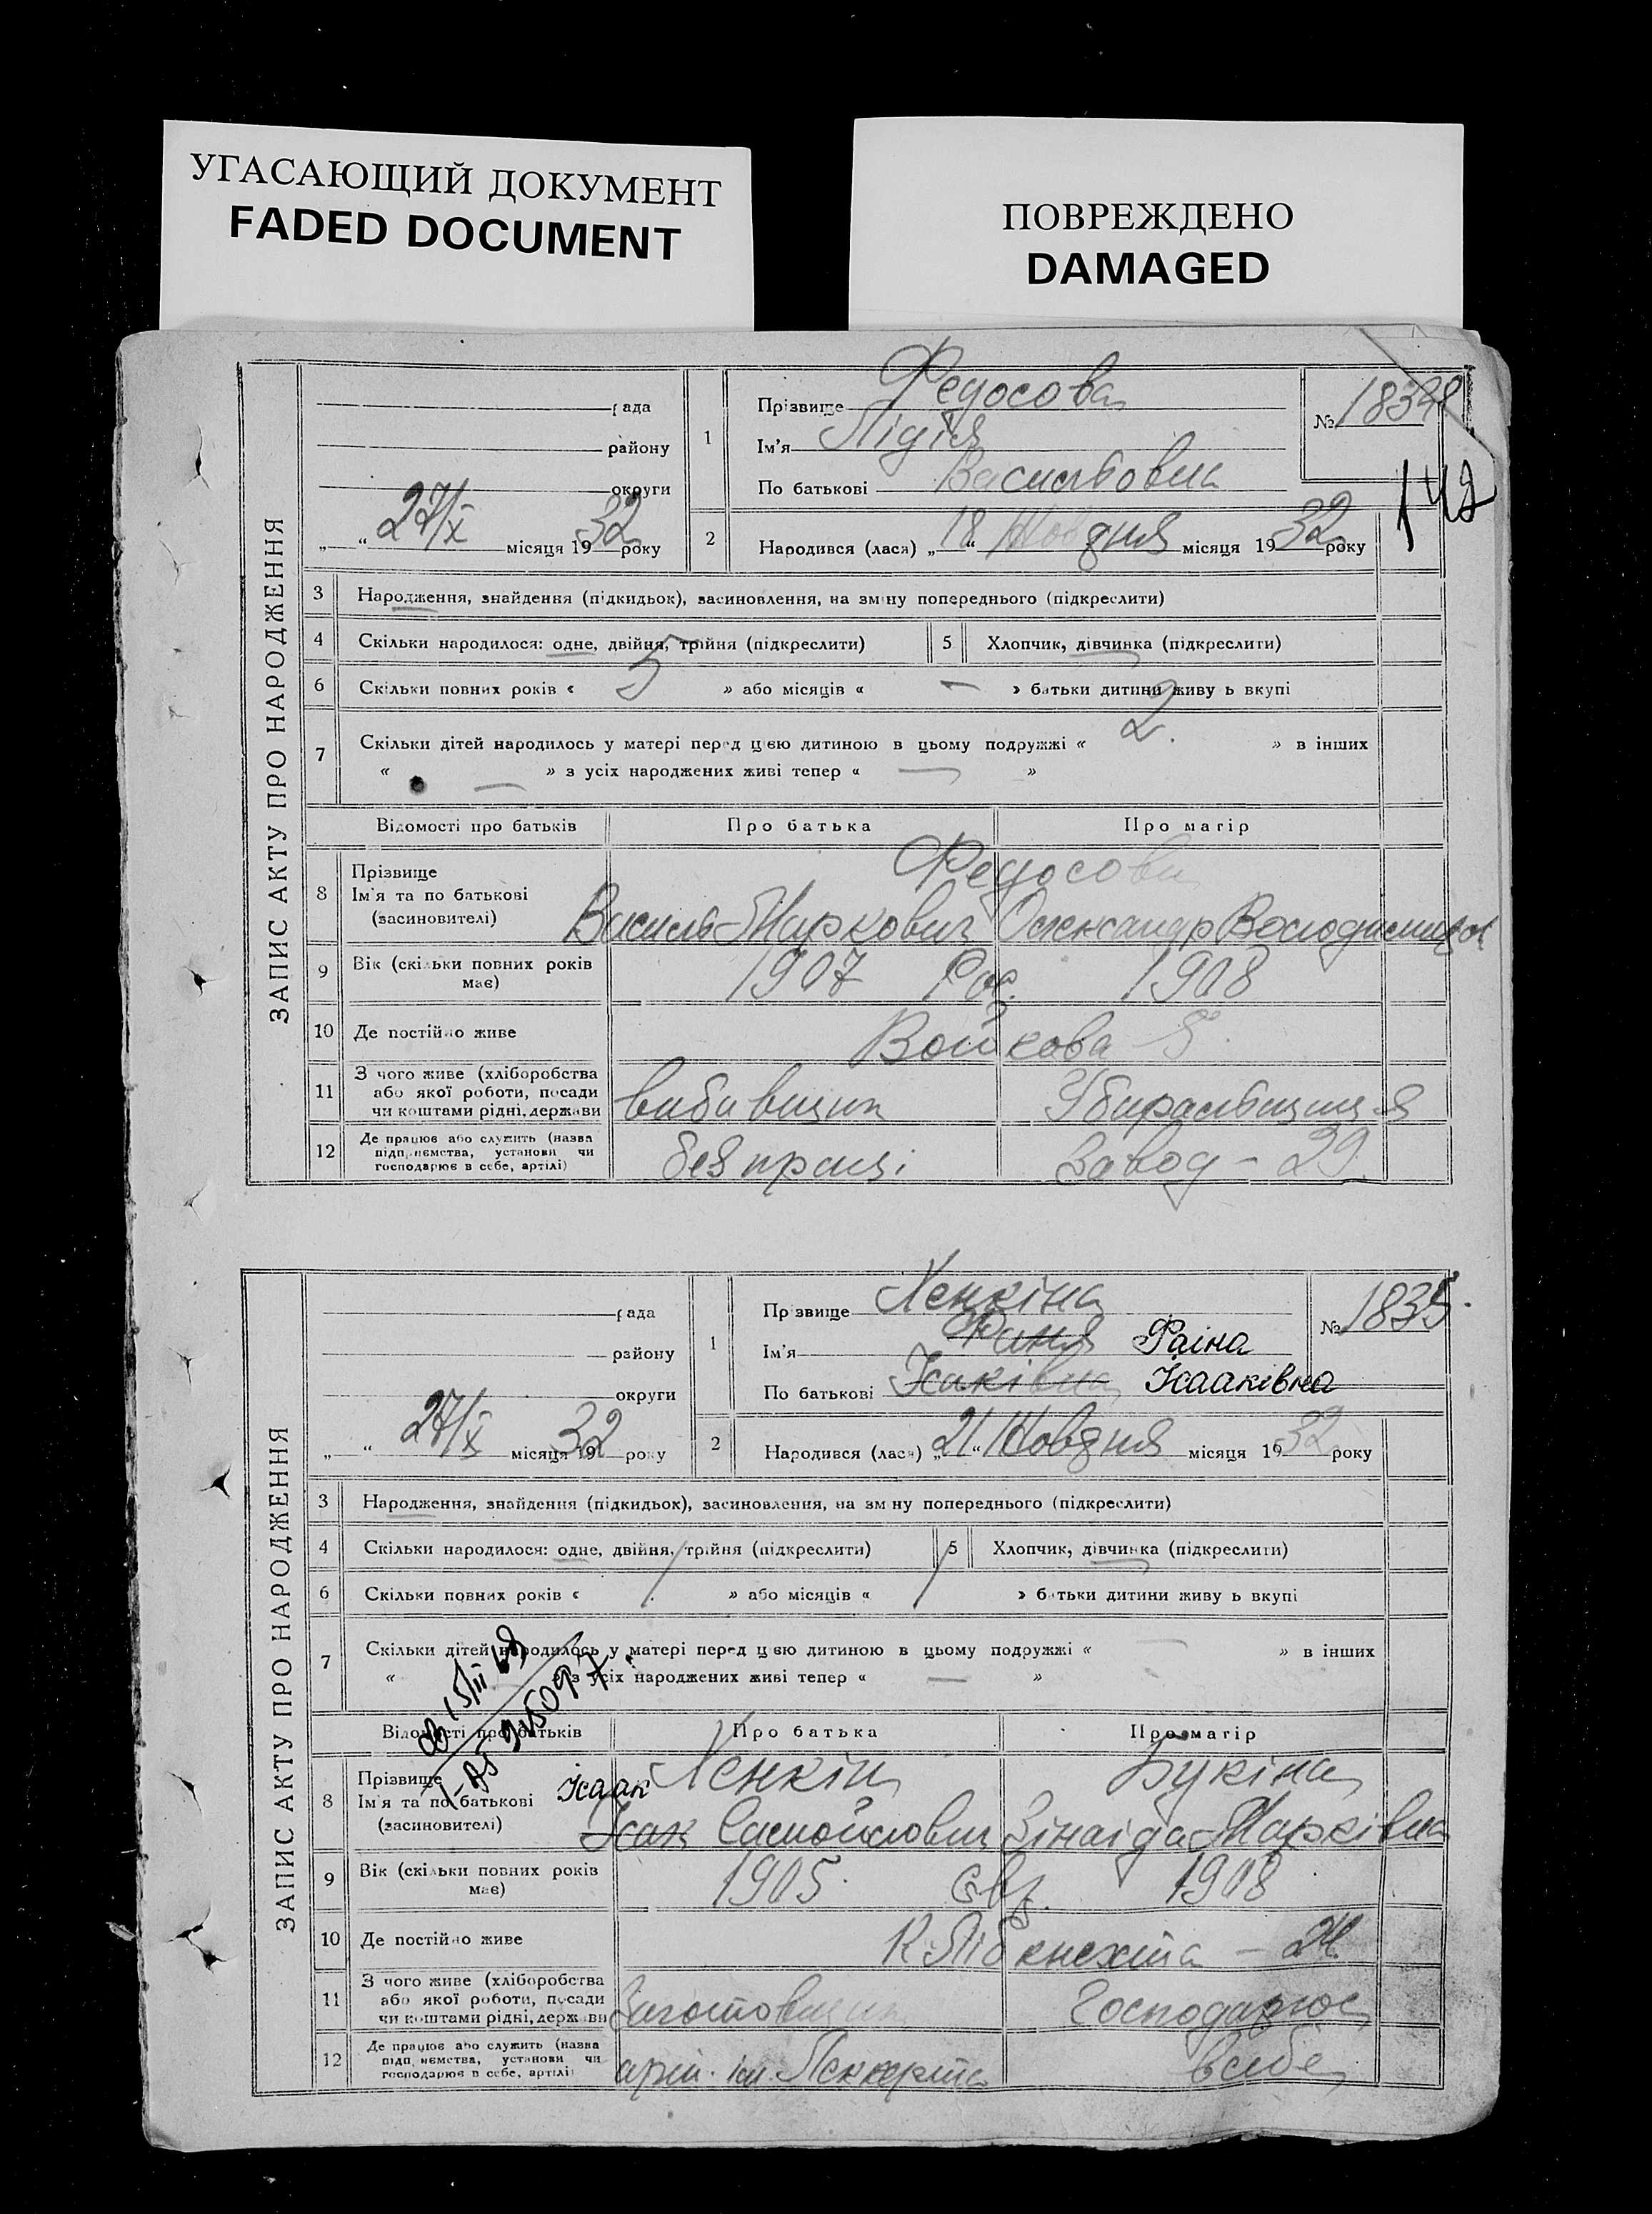 УГАСАЮЩИЙ ДОКУМЕНТ
FADED DOCUMENT
ПОВРЕЖДЕНО
DAMAGED
ЗАПИС АКТУ ПРО НАРОДЖЕННЯ
рада
району
округи
„ “ 27/X місяця 1932 року
1
Прізвище Федосова
Ім'я Лідія
По батькові Васильовна
№ 1834
142
2
Народився (лася) „18“ Жовдня місяця 1932 року
3 Народження, знайдення (підкидьок), засиновлення, на зміну попереднього (підкреслити)
4 Скільки народилося: одне, двійня, трійня (підкреслити)
5 Хлопчик, дівчинка (підкреслити)
6 Скільки повних років « 5 » або місяців « — » батьки дитини живуть вкупі
7 Скільки дітей народилось у матері перед цією дитиною в цьому подружжі « 2. » в інших
« — » з усіх народжених живі тепер « — »
Відомості про батьків Про батька Про матір
8 Прізвище
Ім'я та по батькові
(засиновителі)
Федосови
Василь Маркович Олександр Володимиров
9 Вік (скільки повних років
має)
1907 Рос. 1908
10 Де постійно живе Войкова 8
11 З чого живе (хліборобства
або якої роботи, посади
чи коштами рідні, держави
вибивщик Убиральщиця
12 Де працює або служить (назва
підприємства, установи чи
господарює в себе, артілі)
без праці Завод - 29
ЗАПИС АКТУ ПРО НАРОДЖЕННЯ
рада
району
округи
„ “ 27/X місяця 1932 року
1
Прізвище Хенкіна
Ім'я Фаня Фаіна
По батькові Ісаківна Ісааківна
№ 1835
2
Народився (лася) „21“ Жовдня місяця 1932 року
3 Народження, знайдення (підкидьок), засиновлення, на зміну попереднього (підкреслити)
4 Скільки народилося: одне, двійня, трійня (підкреслити)
5 Хлопчик, дівчинка (підкреслити)
6 Скільки повних років « » або місяців « » батьки дитини живуть вкупі
7 Скільки дітей народилось у матері перед цією дитиною в цьому подружжі « — » в інших
« — » з усіх народжених живі тепер « — »
Відомості про батьків Про батька Про матір
8 Прізвище
Ім'я та по батькові
(засиновителі)
Хенкін Букіна
Ісаак
Ісак Самойлович Зінаіда Марківна
9 Вік (скільки повних років
має)
1905 євр. 1908
10 Де постійно живе К Лібкнехта - 24
11 З чого живе (хліборобства
або якої роботи, посади
чи коштами рідні, держави
Заготовщик Господарює
12 Де працює або служить (назва
підприємства, установи чи
господарює в себе, артілі)
арт. ім. Леккерта в себе